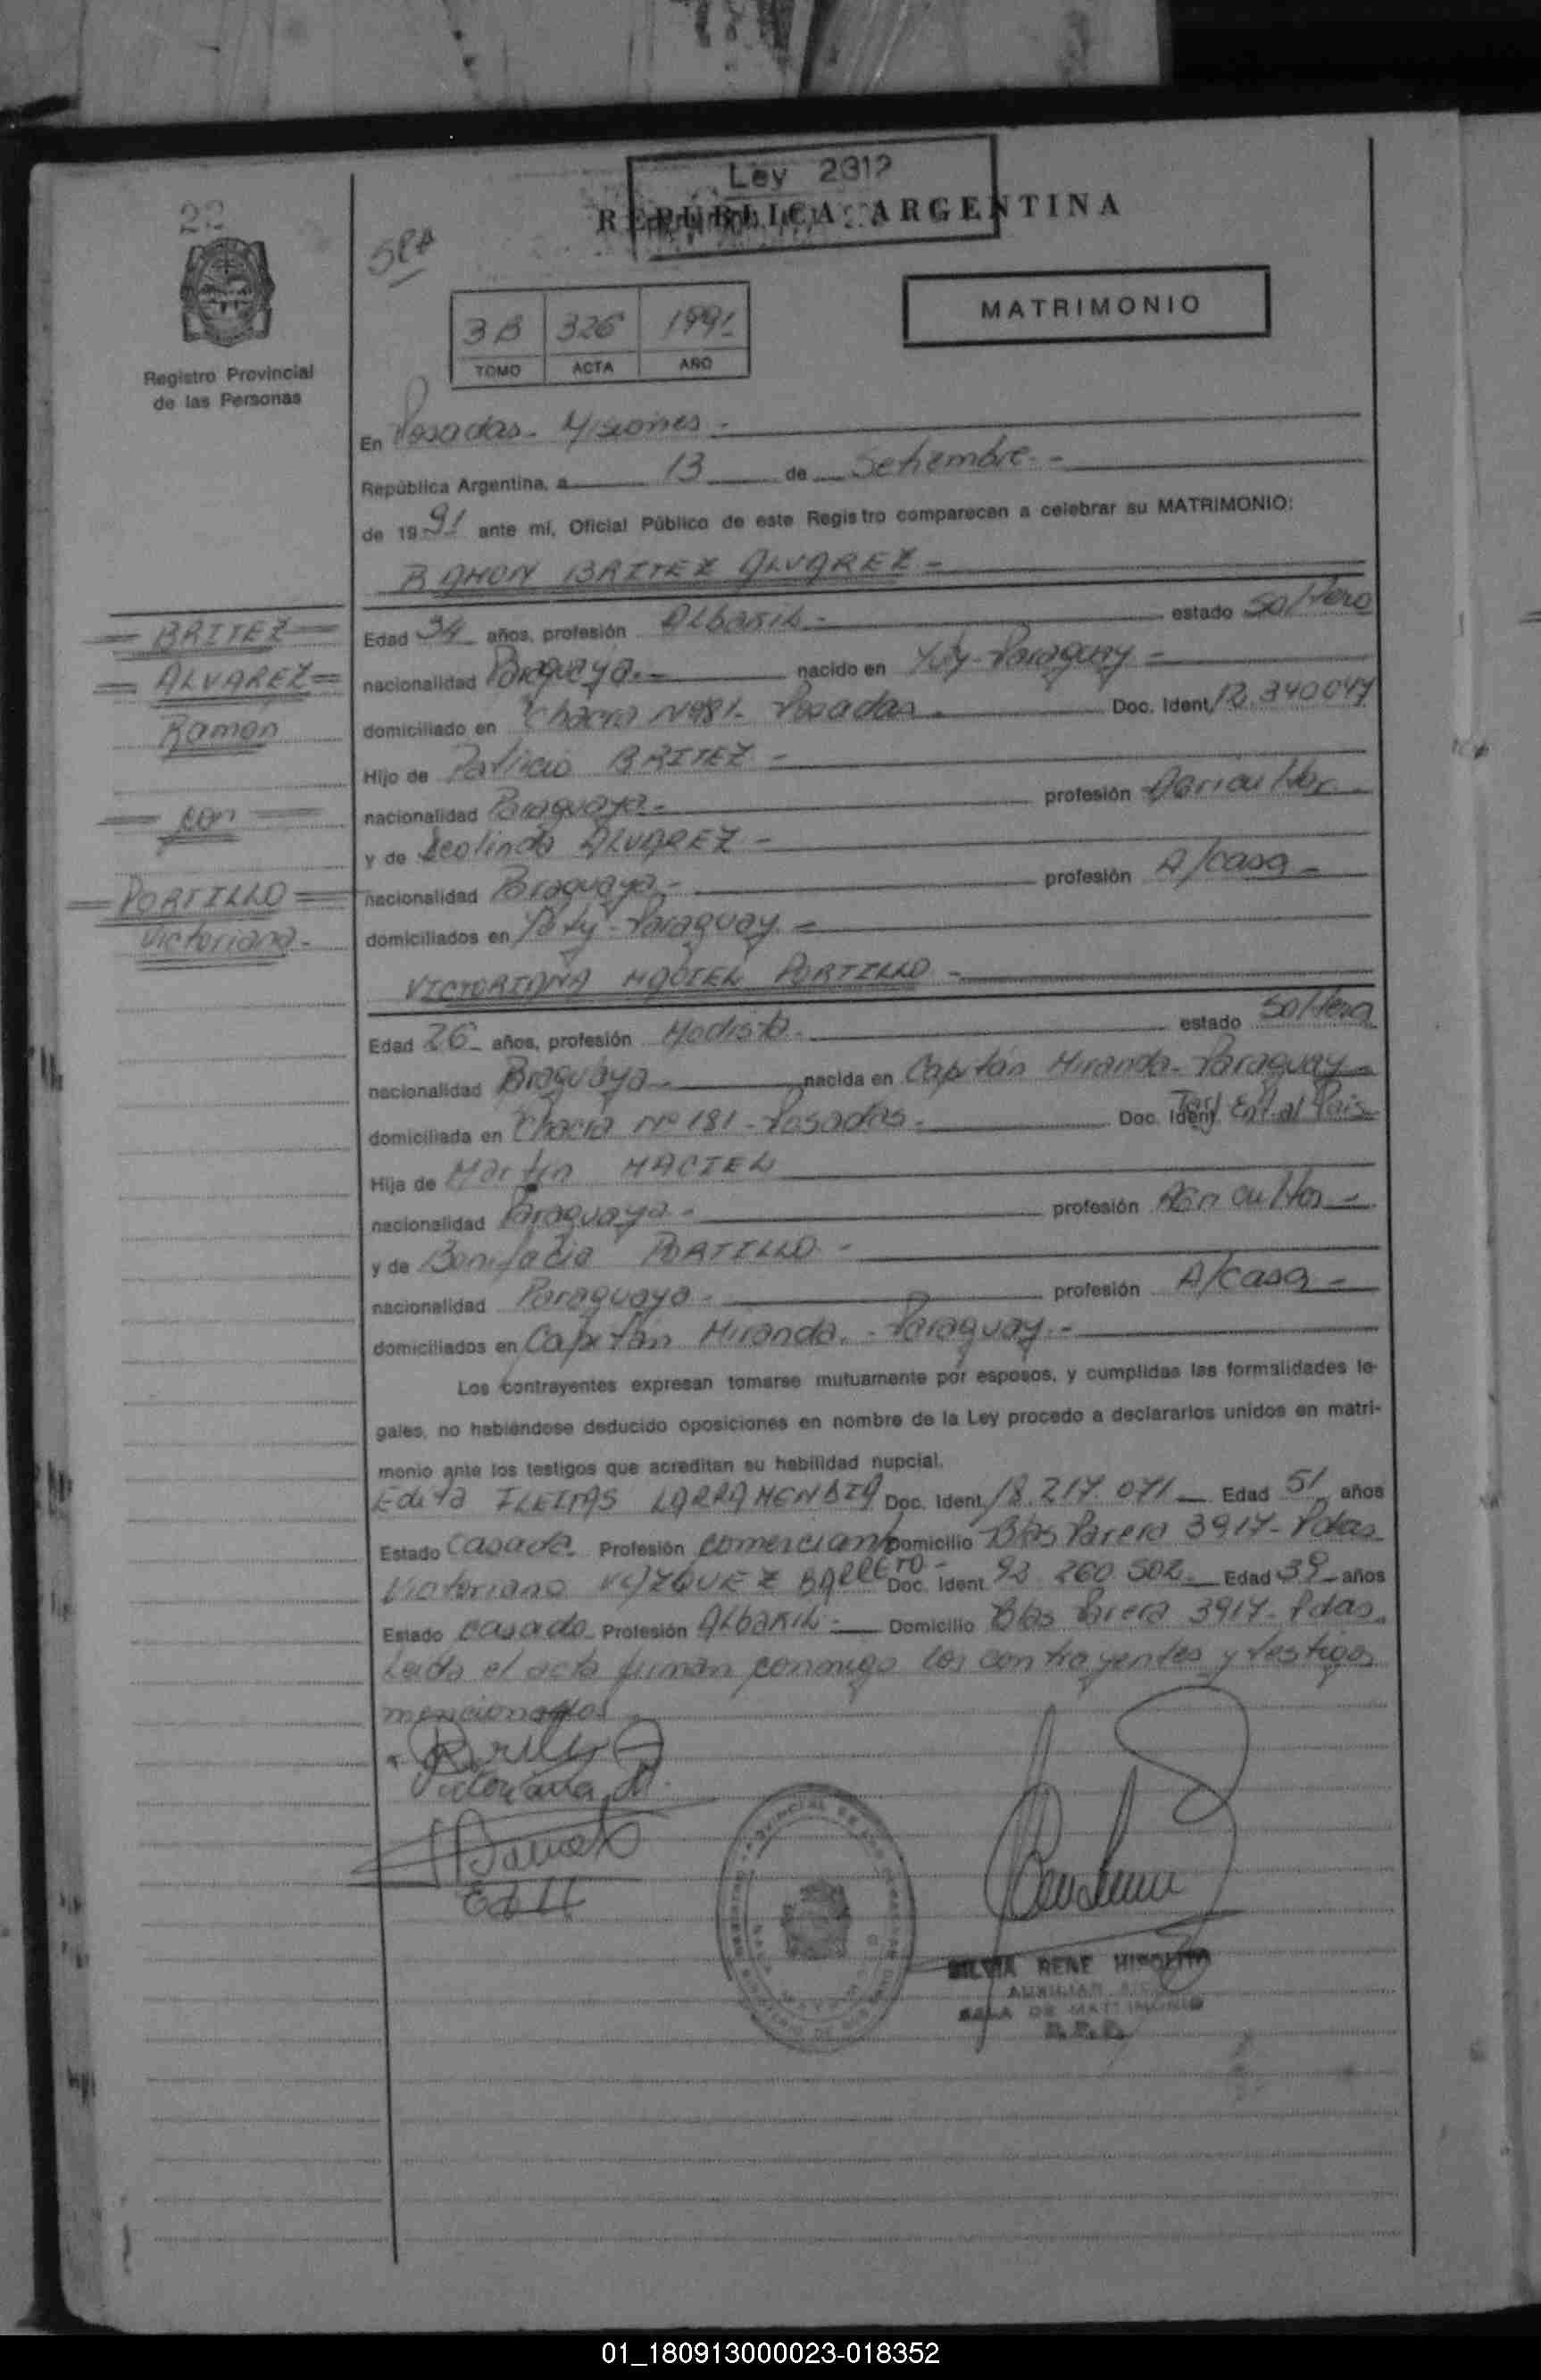 Ley 2312
REPÚBLICA ARGENTINA
22
MATRIMONIO
3B 326 1991
TOMO ACTA AÑO
Registro Provincial
de las Personas
En Posadas - Misiones -
República Argentina, a 13 de Setiembre -
de 1991 ante mí, Oficial Público de este Registro comparecen a celebrar su MATRIMONIO:
RAMON BRITEZ ALVAREZ -
Edad 34 años, profesión Albañil - estado Soltero
nacionalidad Paraguaya - nacido en Yuty - Paraguay -
domiciliado en Chacra Nº 181 - Posadas - Doc. Ident.
Hijo de Patricio BRITEZ -
nacionalidad Paraguaya - profesión Agricultor -
y de ALVAREZ -
nacionalidad Paraguaya - profesión A/casa -
domiciliados en Yuty - Paraguay -
= BRITEZ =
= ALVAREZ =
Ramon
= con =
= PORTILLO =
Victoriana -
VICTORIANA MACIEL PORTILLO -
Edad 26 años, profesión Modista - estado Soltera
nacionalidad Paraguaya - nacida en Capitán Miranda - Paraguay -
domiciliada en Chacra Nº 181 - Posadas - Doc. Ident. Tarj. Ent. al Pais
Hija de Martin MACIEL
nacionalidad Paraguaya - profesión Agricultor -
y de Bonifacia PORTILLO -
nacionalidad Paraguaya - profesión A/casa -
domiciliados en Capitán Miranda - Paraguay -
Los contrayentes expresan tomarse mutuamente por esposos, y cumplidas las formalidades le-
gales, no habiéndose deducido oposiciones en nombre de la Ley procedo a declararlos unidos en matri-
monio ante los testigos que acreditan su habilidad nupcial.
Edita FLEITAS LARRAMENDIA Doc. Ident. 18.217.071 - Edad 51 años
Estado Casada - Profesión Comerciante Domicilio Blas Parera 3917 - Pdas
Victoriano VAZQUEZ BARRETO - Doc. Ident. 92.260.502 - Edad 39 años
Estado casado - Profesión Albañil - Domicilio Blas Parera 3917 - Pdas.
Leida el acta firman conmigo los contrayentes y testigos
mencionados
Victoriana M.
SILVIA RENE HIPOLITO
AUXILIAR
SALA DE MATRIMONIO
R. P. P.
01_180913000023-018352